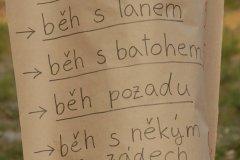 → běh s lanem
→ běh s batohem
→ běh pozadu
→ běh s někým
zádech